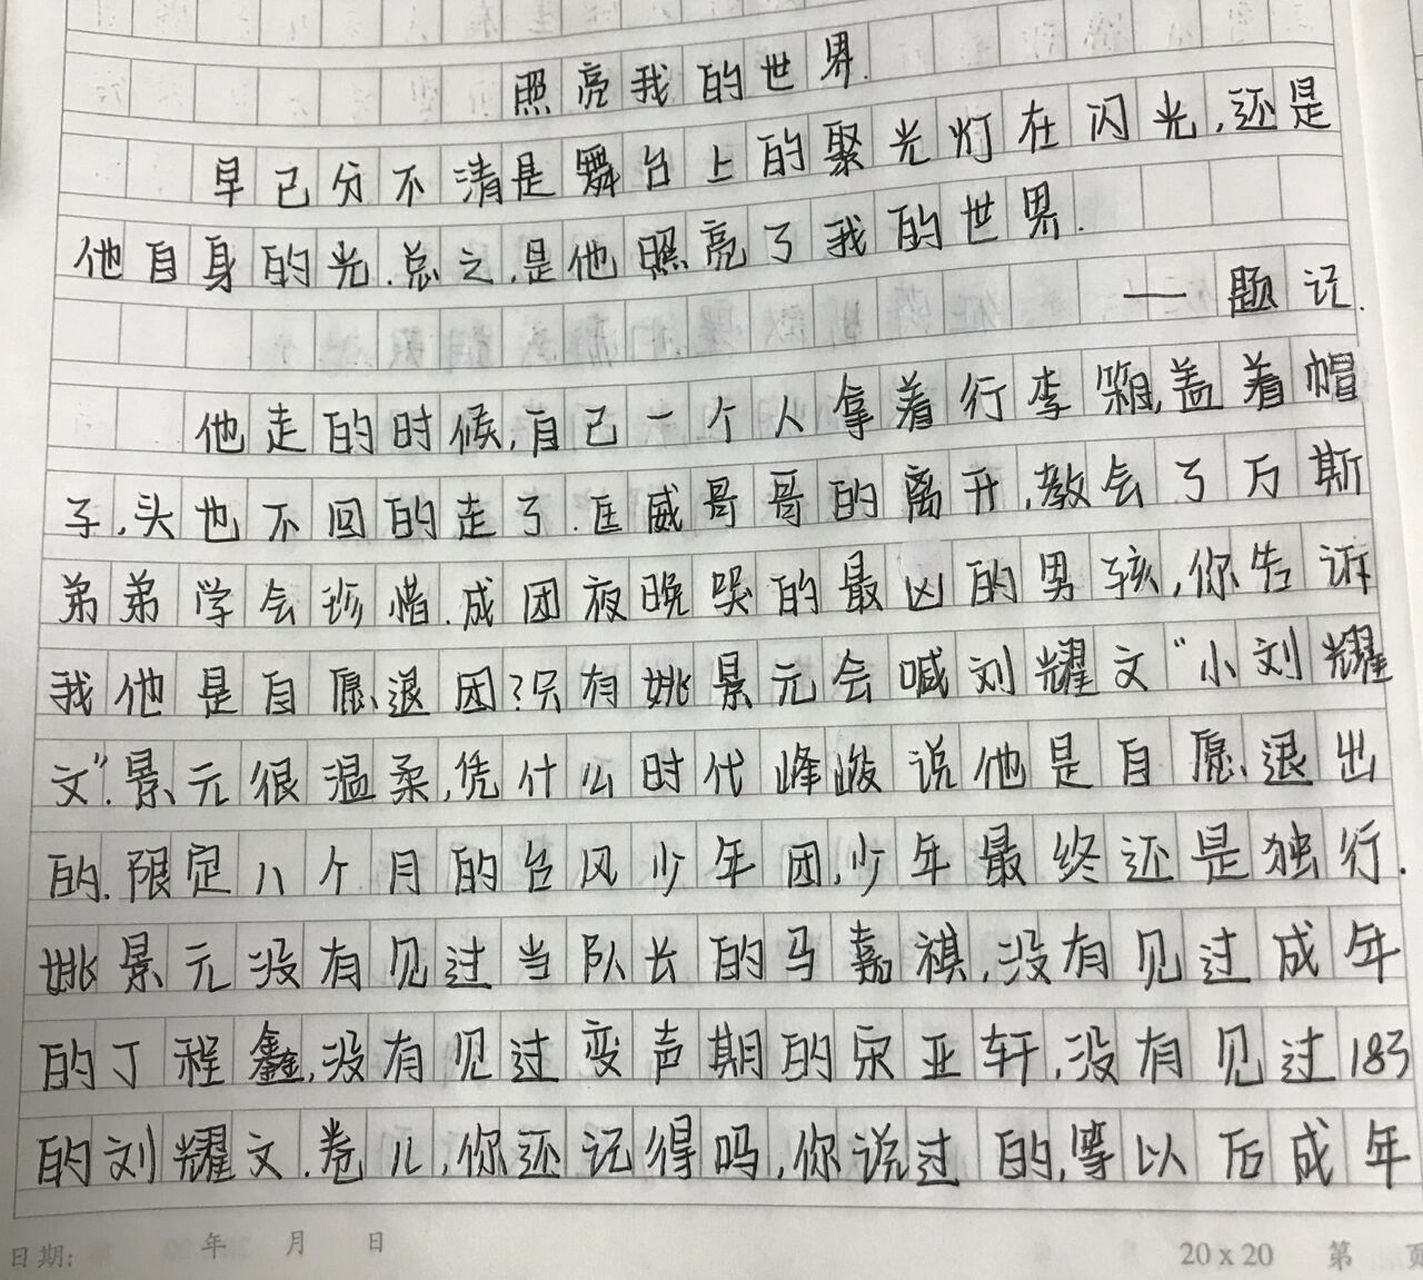 照亮我的世界.
早已分不清是舞台上的聚光灯在闪光,还是
他自身的光.总之,是他照亮了我的世界.
——题记.
他走的时候,自己一个人拿着行李箱,盖着帽
子,头也不回的走了.匡威哥哥的离开,教会了万斯
弟弟学会珍惜.成团夜晚哭的最凶的男孩,你告诉
我他是自愿退团?只有姚景元会喊刘耀文“小刘耀
文”.景元很温柔,凭什么时代峰峻说他是自愿退出
的.限定八个月的台风少年团,少年最终还是独行.
姚景元没有见过当队长的马嘉祺,没有见过成年
的丁程鑫,没有见过变声期的宋亚轩,没有见过183
的刘耀文.卷儿,你还记得吗,你说过的,等以后成年
日期: 年 月 日 20x20 第 页